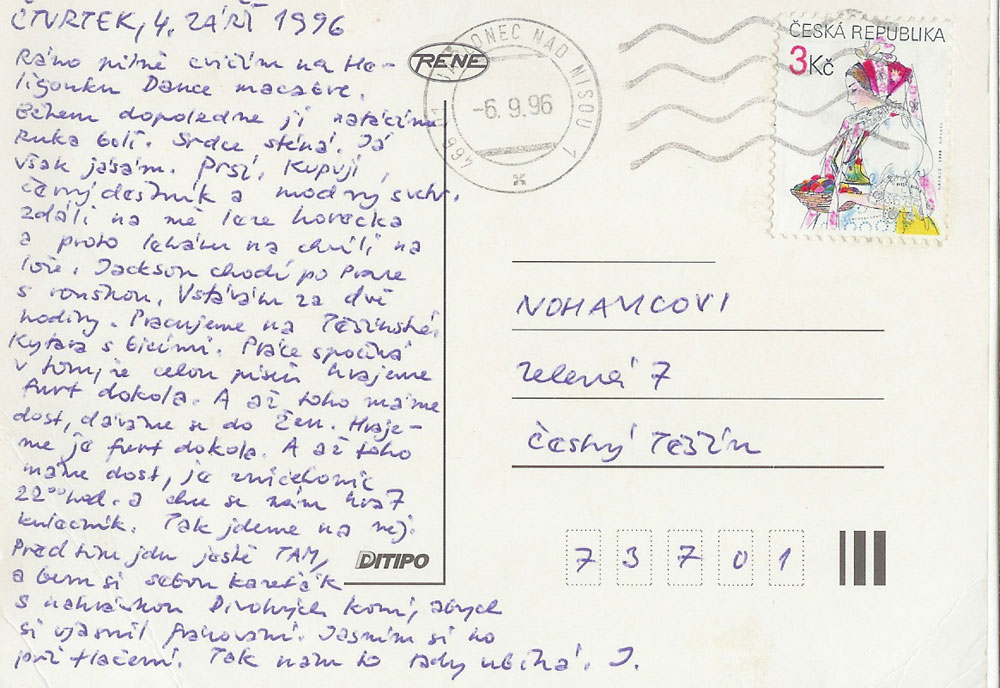 ČTVRTEK, 4. ZÁŘÍ 1996
Ráno pilně cvičím na He-
ligonku Dance macabre.
Během dopoledne ji natáčíme.
Ruka bolí. Srdce sténá. Já
však jásám. Prší. Kupuji
černý deštník a modrý svetr.
Zdáli na mě leze horečka
a proto lehám na chvíli na
lože. Jackson chodí po Praze
s rouškou. Vstávám za dvě
hodiny. Pracujeme na Těšínské.
Kytara s bicími. Práce spočívá
v tom, že celou píseň hrajeme
furt dokola. A až toho máme
dost, dáváme se do Žen. Hraje-
me je furt dokola. A až toho
máme dost, je zničehonic
22⁰⁰ hod. a chce se nám hrát
kulečník. Tak jdeme na něj.
Před tím jdu ještě TAM,
a beru si sebou kazeťák
s nahrávkou Divokých koní, abych
si ujasnil frázování. Jasním si ho
při tlačení. Tak nám to tady ubíhá. J.
RENE
DITIPO
466 01 JABLONEC NAD NISOU 1
-6. 9. 96
ČESKÁ REPUBLIKA
3 Kč
NOHAVICOVI
Zelená 7
Český Těšín
7 3 7 0 1